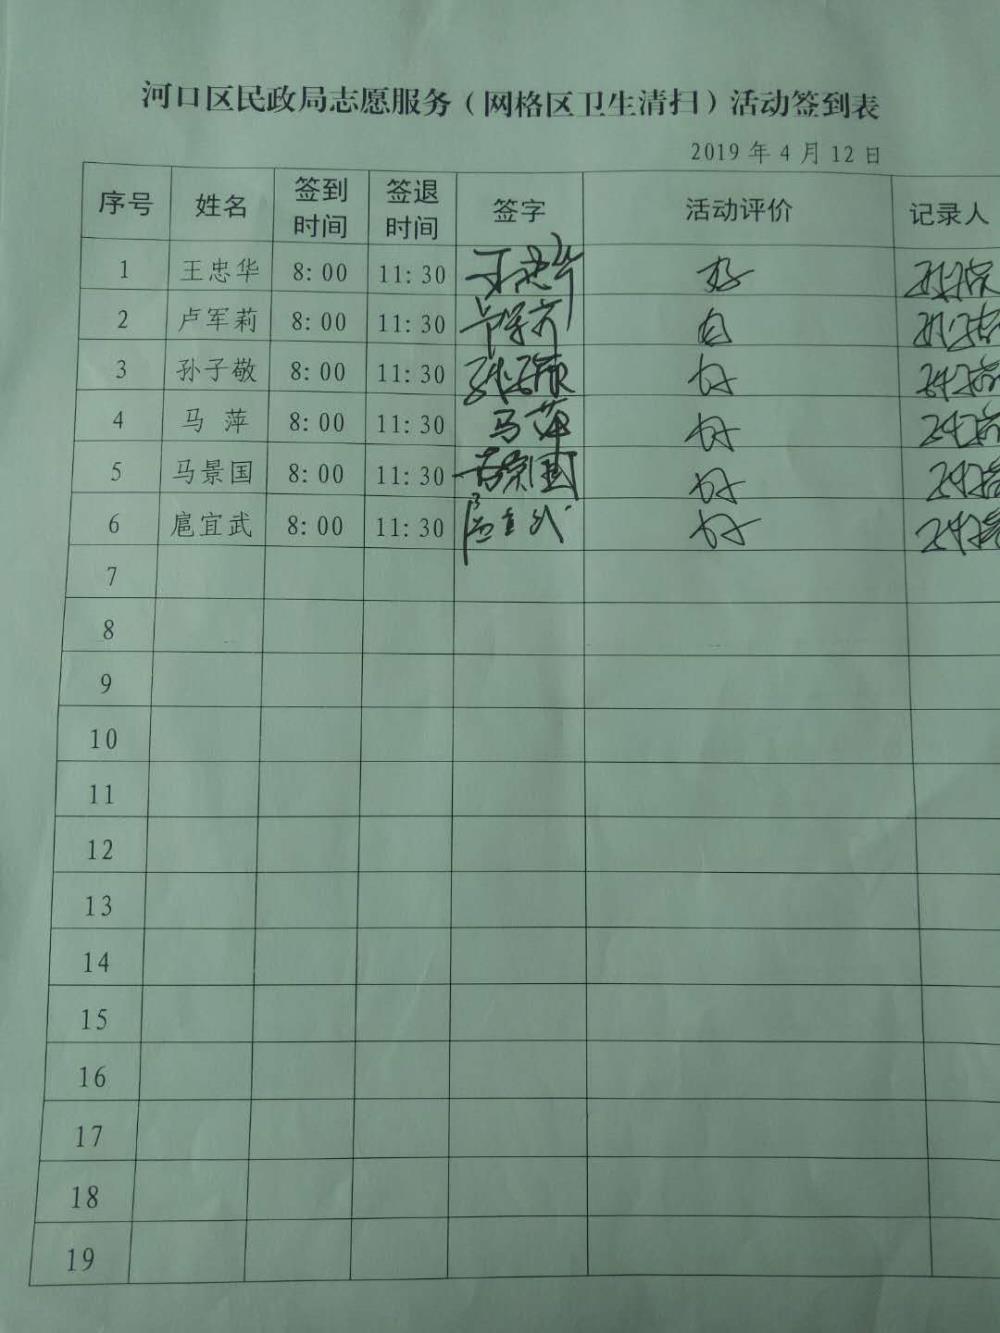 河口区民政局志愿服务（网格区卫生清扫）活动签到表
2019 年 4 月 12 日
序号 姓名 签到时间 签退时间 签字 活动评价 记录人
1 王忠华 8: 00 11: 30 王忠华 好
2 卢军莉 8: 00 11: 30
3 孙子敬 8: 00 11: 30 好
4 马 萍 8: 00 11: 30 马萍 好
5 马景国 8: 00 11: 30 马景国 好
6 扈宜武 8: 00 11: 30 扈宜武 好
7
8
9
10
11
12
13
14
15
16
17
18
19